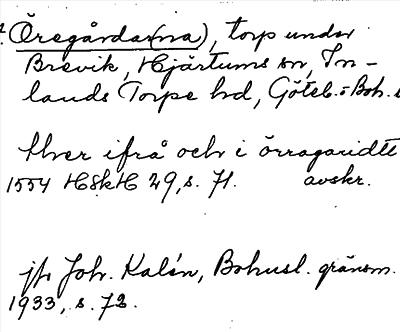 Öregårda(rna), torp under
Brevik, Hjärtums sn, In-
lands Torpe hd, Göteb. o Boh. s
ther ifrå och i örragaridtt
1554 HSkH 29, s. 71. avskr.
jfr Joh. Kalén, Bohusl. gränsm.
1933, s. 72.